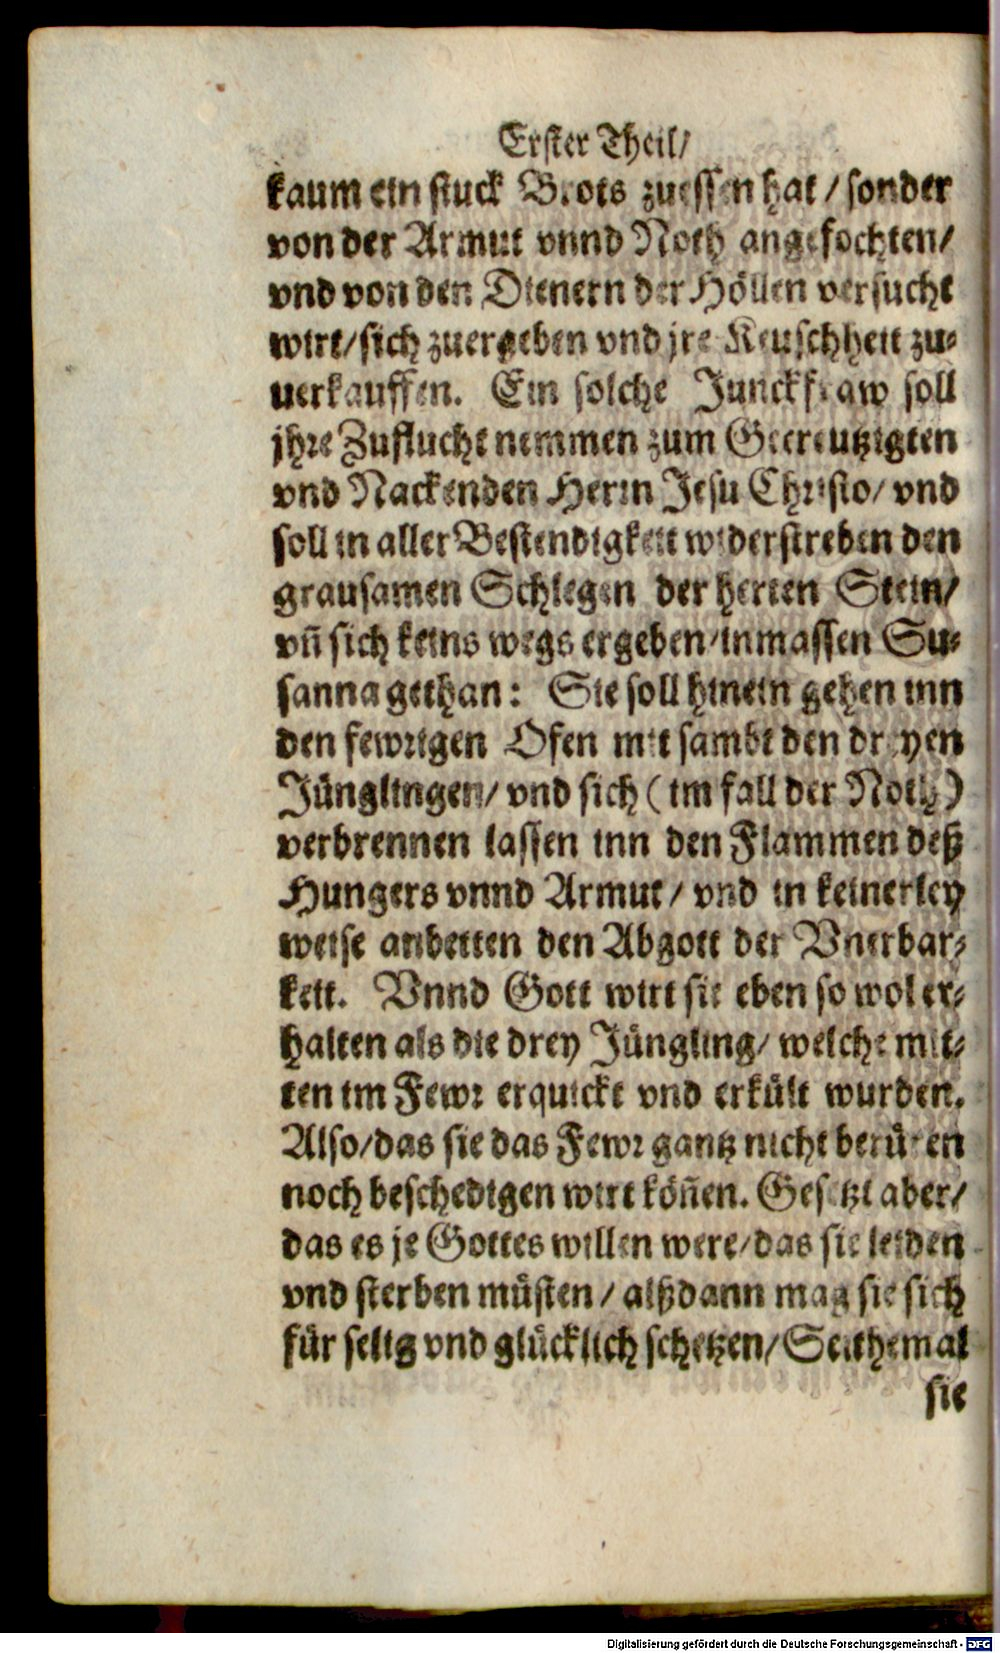 Erster Theil/
kaum ein stuck Brots zuessen hat / sonder
von der Armut vnnd Noth angefochten/
vnd von den Dienern der Höllen versucht
wirt/sich zuergeben vnd jre Keuschheit zu-
uerkauffen. Ein solche Junckfraw soll
jhre Zuflucht nemmen zum Gecreutzigten
vnd Nackenden Herrn Jesu Christo/ vnd
soll in aller Bestendigkeit widerstreben den
grausamen Schlegen der herten Stein/
vn̄ sich keins wegs ergeben/inmassen Su-
sanna gethan: Sie soll hinein gehen inn
den fewrigen Ofen mit sambt den dreyen
Jünglingen/ vnd sich (im fall der Noth)
verbrennen lassen inn den Flammen deß
Hungers vnnd Armut/ vnd in keinerley
weise anbetten den Abgott der Vnerbar-
keit. Vnnd Gott wirt sie eben so wol er-
halten als die drey Jüngling/ welche mit-
ten im Fewr erquickt vnd erkült wurden.
Also/das sie das Fewr gantz nicht berüren
noch beschedigen wirt kön̄en. Gesetzt aber/
das es je Gottes willen were/das sie leiden
vnd sterben müsten / alßdann mag sie sich
für selig vnd glücklich schetzen/Seithemal
sie
Digitalisierung gefördert durch die Deutsche Forschungsgemeinschaft - DFG